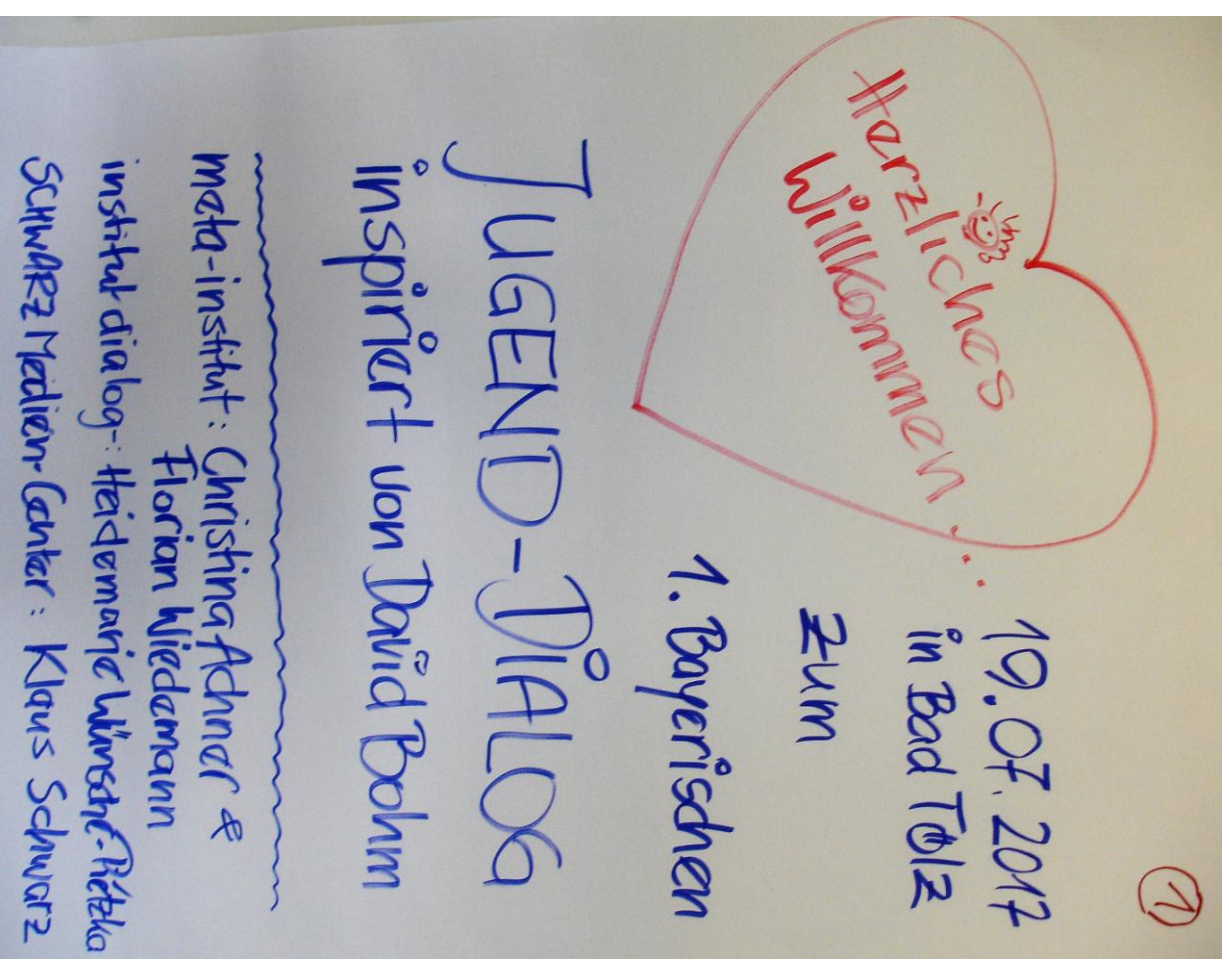 ①
Herzliches
Willkommen...
19.07.2017
in Bad Tölz
zum
1. Bayerischen
JUGEND-DIALOG
inspiriert von David Bohm
meta-institut: Christina Achner &
Florian Wiedemann
institut dialog-: Heidemarie Wünsche-Piétzka
SCHWARZ Medien-Center: Klaus Schwarz